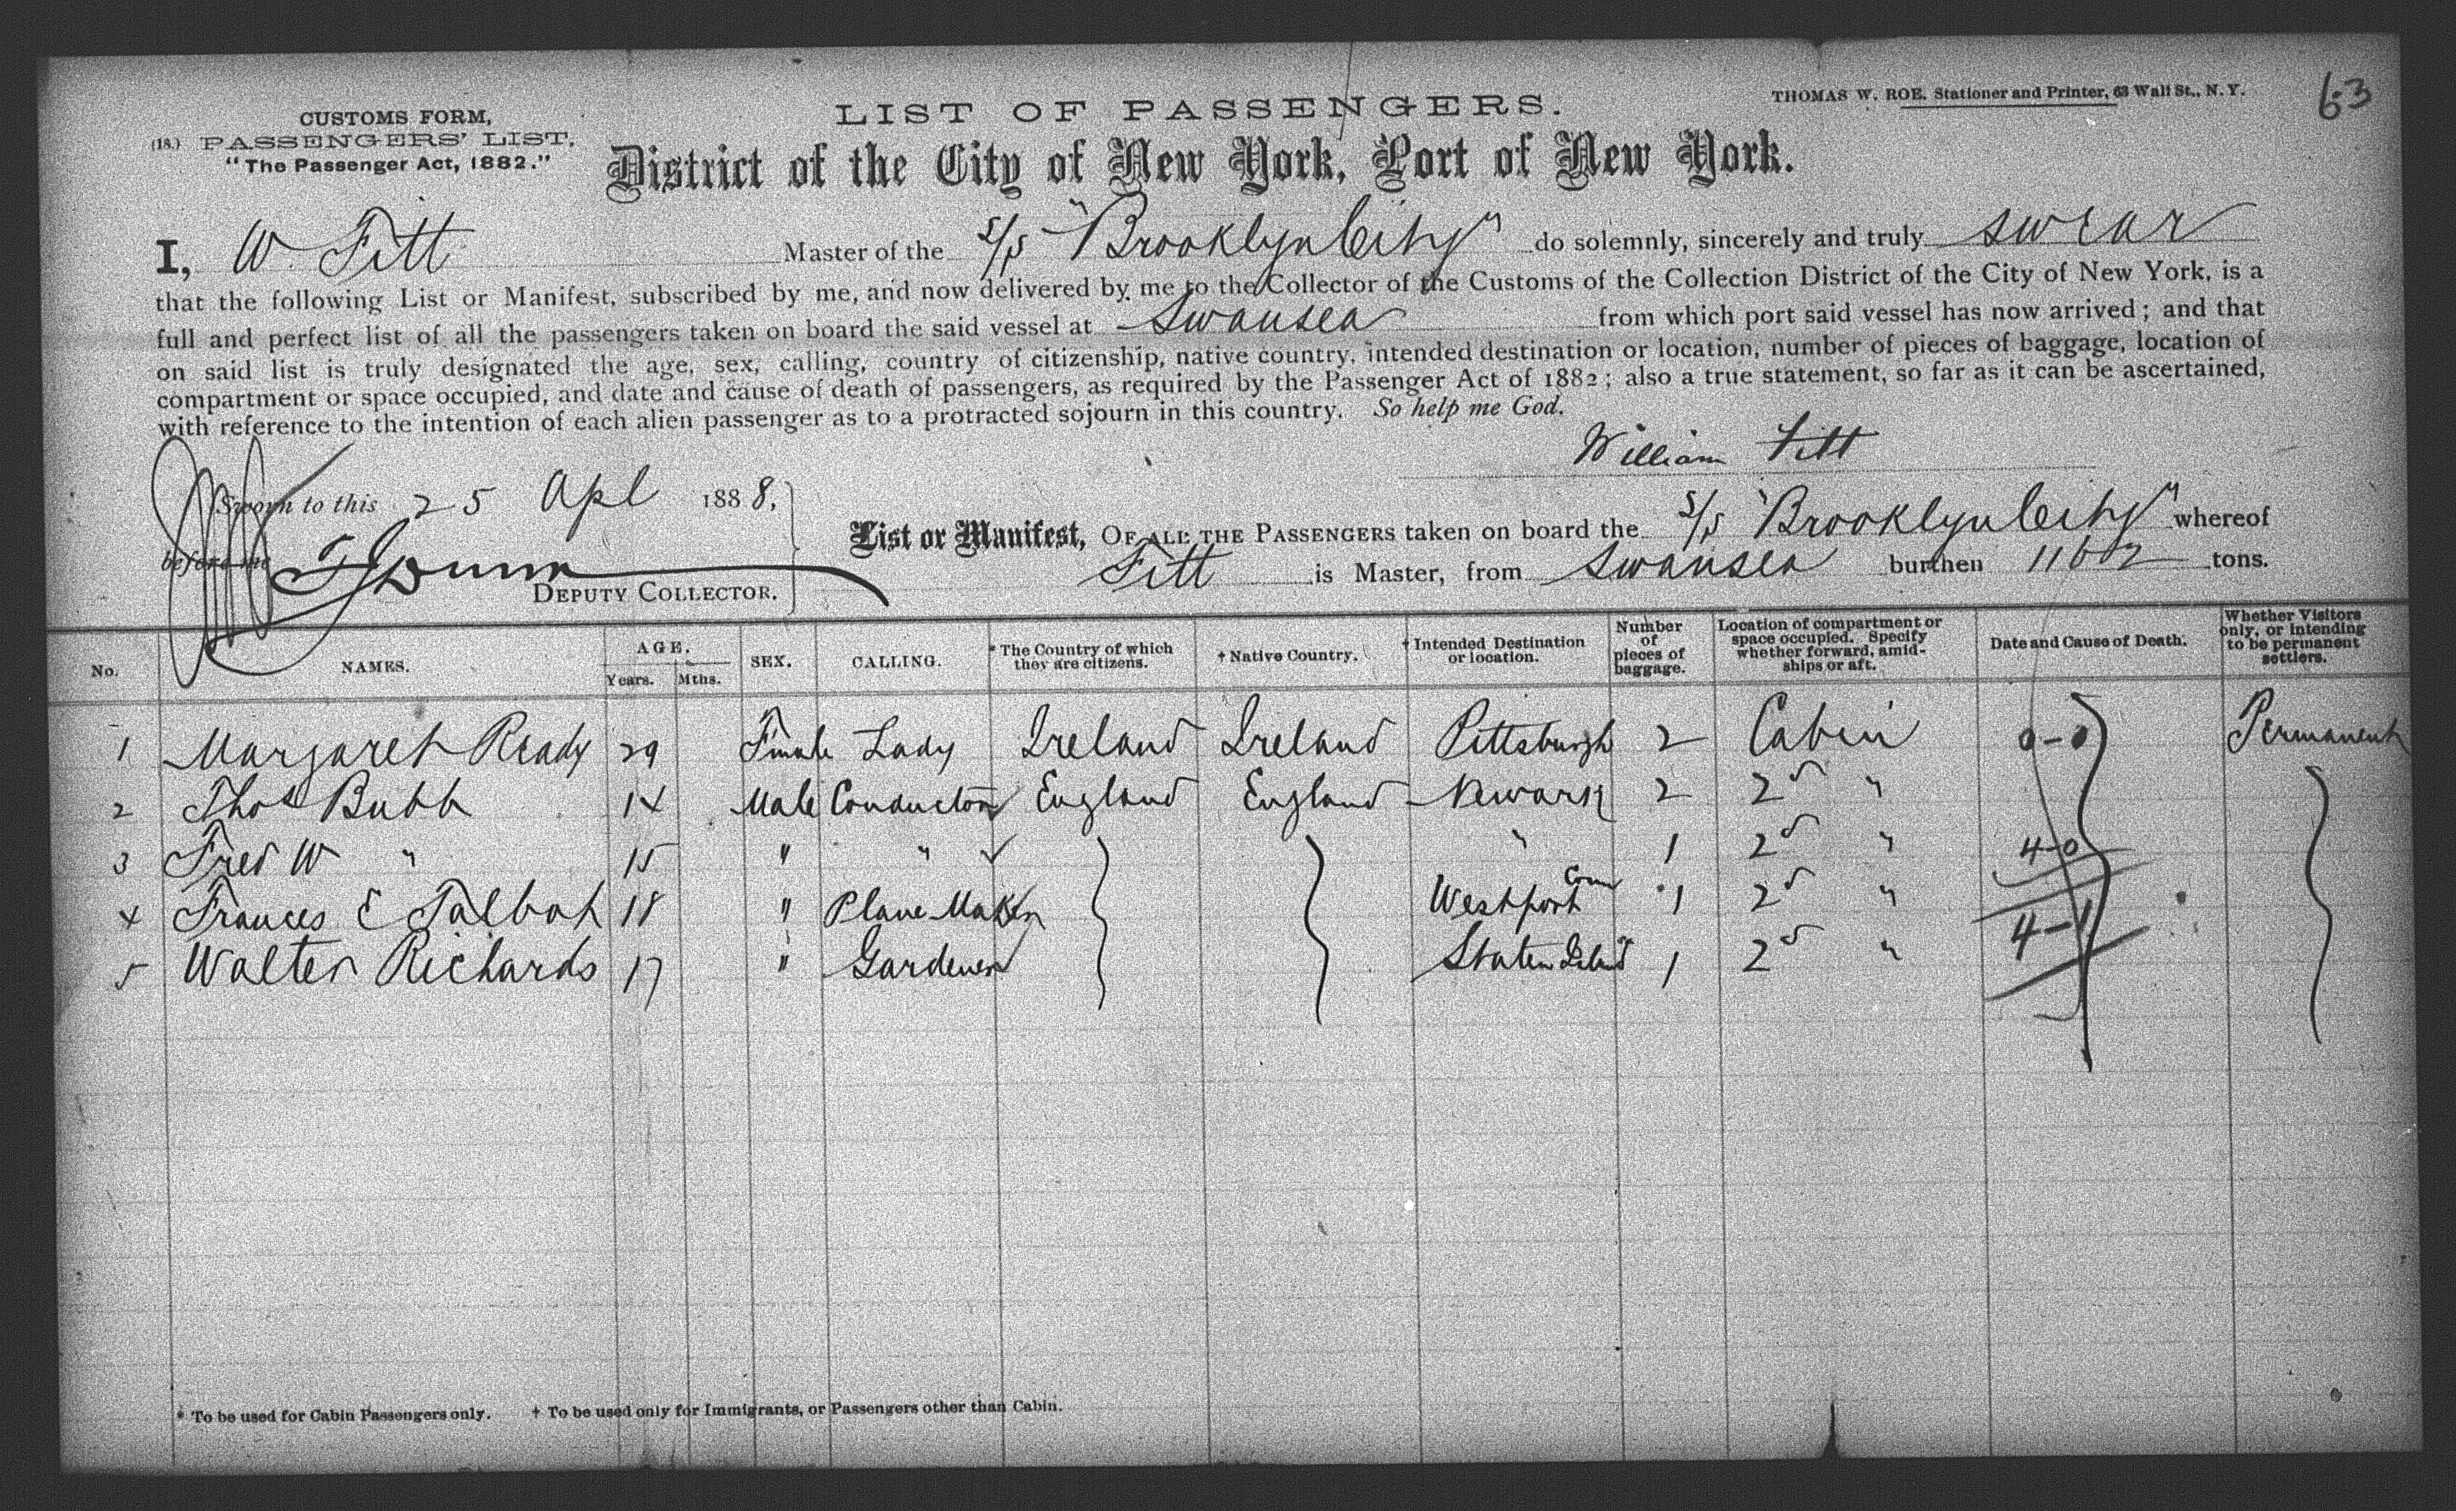 CUSTOMS FORM,
(18.) PASSENGERS' LIST,
"The Passenger Act, 1882."
LIST OF PASSENGERS.
THOMAS W. ROE, Stationer and Printer, 63 Wall St., N.Y.
63
District of the City of New York, Port of New York.
I, W. Fitt Master of the S/S "Brooklyn City" do solemnly, sincerely and truly swear
that the following List or Manifest, subscribed by me, and now delivered by me to the Collector of the Customs of the Collection District of the City of New York, is a
full and perfect list of all the passengers taken on board the said vessel at Swansea from which port said vessel has now arrived; and that
on said list is truly designated the age, sex, calling, country of citizenship, native country, intended destination or location, number of pieces of baggage, location of
compartment or space occupied, and date and cause of death of passengers, as required by the Passenger Act of 1882; also a true statement, so far as it can be ascertained,
with reference to the intention of each alien passenger as to a protracted sojourn in this country. So help me God.
William Fitt
Sworn to this 25 Apl 1888,
before me
DEPUTY COLLECTOR.
List or Manifest, OF ALL THE PASSENGERS taken on board the S/S "Brooklyn City" whereof
Fitt is Master, from Swansea burthen tons.
No. NAMES. AGE. Years. Mths. SEX. CALLING. * The Country of which they are citizens. † Native Country. † Intended Destination or location. Number of pieces of baggage. Location of compartment or space occupied. Specify whether forward, amidships or aft. Date and Cause of Death. Whether Visitors only, or intending to be permanent settlers.
1 Margaret Ready 29 Female Lady Ireland Ireland Pittsburgh 2 Cabin 0-0 Permanent
2 Thos Bubb 14 Male Conductor England England Newark 2 2d "
3 Fred W " 15 " " " 1 2d " 4-0
4 Frances E Talbot 18 " Plane Maker Westport Conn 1 2d "
4-1
5 Walter Richards 17 " Gardener Staten Isl'd 1 2d "
* To be used for Cabin Passengers only. † To be used only for Immigrants, or Passengers other than Cabin.